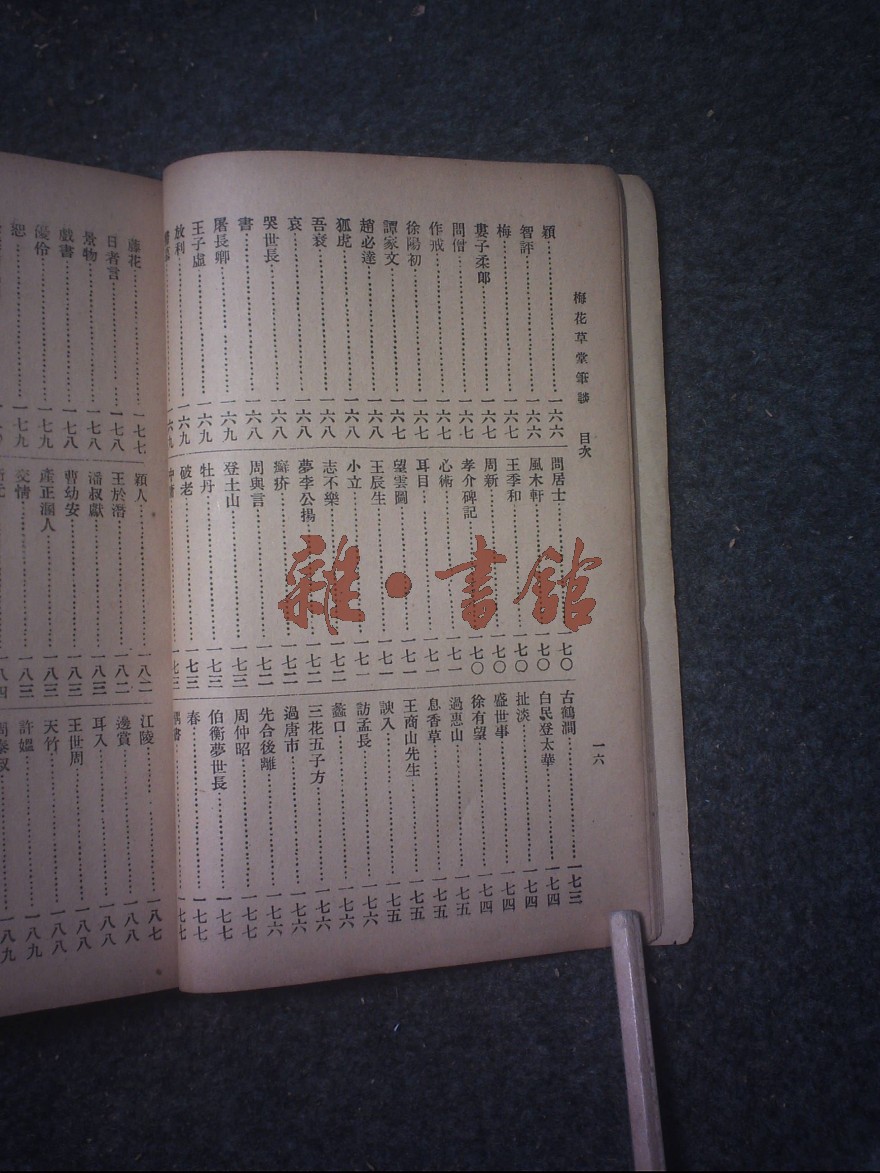 梅花草堂筆談 目次 一六
穎 一六六
智評 一六六
梅 一六七
婁子柔郎 一六七
問僧 一六七
作戒 一六七
徐陽初 一六七
譚家文 一六七
趙必達 一六八
狐虎 一六八
吾衰 一六八
哀 一六八
哭世長 一六八
書 一六八
屠長卿 一六九
王子虛 一六九
放利 一六九
一六九
問居士 一七〇
風木軒 一七〇
王季和 一七〇
周新 一七〇
孝介碑記 一七〇
心術 一七一
耳目 一七一
望雲圖 一七一
王辰生 一七一
小立 一七一
志不樂 一七二
夢李公揚 一七二
癬疥 一七二
周與言 一七二
登土山 一七三
牡丹 一七三
破老 一七三
一七三
古鶴澗 一七三
白民登太華 一七四
扯淡 一七四
盛世事 一七四
徐有望 一七四
過惠山 一七五
息香草 一七五
王商山先生 一七五
諛入 一七五
訪孟長 一七六
蠡口 一七六
三花五子方 一七六
過唐市 一七六
先合後離 一七六
周仲昭 一七七
伯衡夢世長 一七七
春 一七七
偶書 一七七
藤花 一七七
日者言 一七八
景物 一七八
戲書 一七八
優伶 一七九
恕 一七九
穎人 一八二
王於潛 一八二
潘叔獻 一八三
曹幼安 一八三
產正瀾人 一八三
交情 一八三
一八四
江陵 一八七
邊賞 一八八
耳入 一八八
王世周 一八八
天竹 一八八
許媼 一八九
一八九
雜·書館